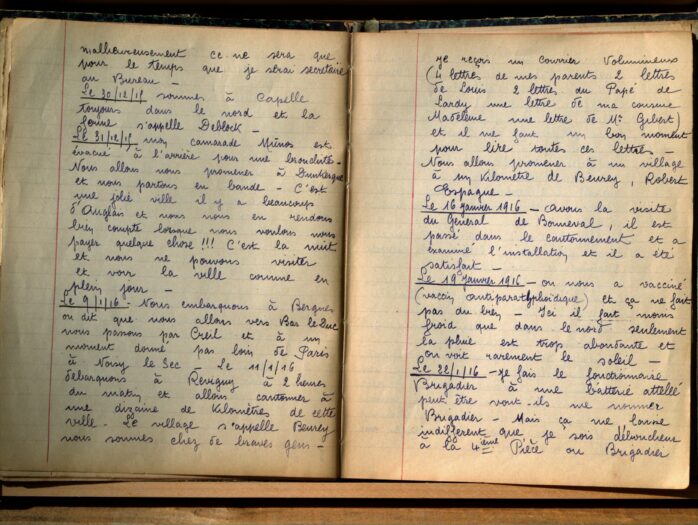 malheureusement ce ne sera que
pour le temps que je serai secrétaire
au Bureau -
Le 30/12/15 sommes à Capelle
toujours dans le nord et la
ferme s'appelle Deblock -
Le 31/12/15 mon camarade Munos est
évacué à l'arrière pour une bronchite -
Nous allons nous promener à Dunkerque
et nous partons en bande - C'est
une jolie ville il y a beaucoup
d'Anglais et nous nous en rendons
bien compte lorsque nous voulons nous
payer quelque chose !!! C'est la nuit
et nous ne pouvons visiter
et voir la ville comme en
plein jour -
Le 9/1/16 - Nous embarquons à Bergues
on dit que nous allons vers Bar le Duc
nous passons par Creil et à un
moment donné pas loin de Paris
à Noisy le Sec - Le 11/1/16
débarquons à Revigny à 2 heures
du matin et allons cantonner à
une dizaine de Kilomètres de cette
ville - Le village s'appelle Beurey
nous sommes chez de braves gens -
je reçois un courrier Volumineux
(4 lettres de mes parents 2 lettres
de Louis 2 lettres du Papé de
Lardy une lettre de ma cousine
Madeleine une lettre de Mr Gibert)
et il me faut un bon moment
pour lire toutes ces lettres -
Nous allons promener à un village
à un Kilomètre de Beurey, Robert
Espagne -
Le 16 janvier 1916 - avons la visite
du Général de Bonneval, il est
passé dans le cantonnement et a
examiné l'installation et il a été
satisfait -
Le 19 Janvier 1916 - on nous a vacciné
(vaccin antiparathyphoïdique) et ça ne fait
pas du bien - Ici il fait moins
froid que dans le nord seulement
la pluie est trop abondante et
on voit rarement le soleil -
Le 22/1/16 - Je fais le fonctionnaire
Brigadier à une batterie attelée
peut être vont-ils me nommer
Brigadier - Mais ça me laisse
indifférent que je sois déboucheur
à la 4ième Pièce ou Brigadier